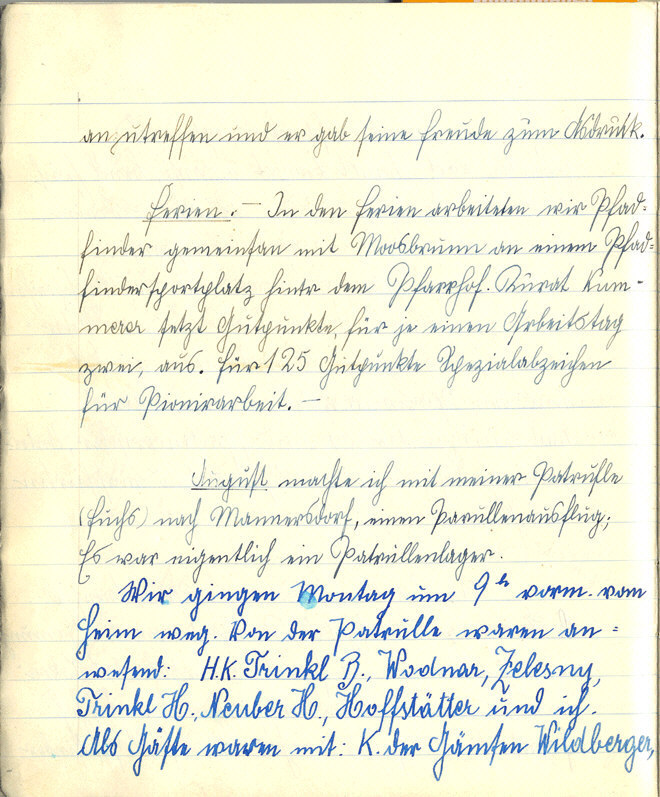 anzutreffen und er gab seine Freude zum Asdruck.
Ferien. – In den Ferien arbeiteten wir Pfad=
finder gemeinsan mit Moosbrunn an einem Pfad=
findersportplatz hintr dem Pfarrhof. Kurat Kum-
merer setzt Gutpunkte, für je einen Arbeitstag
zwei, aus. Für 125 Gutpunkte Spezialabzeichen
für Pionirarbeit. –
August machte ich mit meiner Patrulle
(Fuchs) nach Mannersdorf, einen Parullenausflug;
Es war eigentlich ein Patrullenlager.
Wir gingen Montag um 9h vorm. vom
Heim weg. Von der Patrulle waren an=
wesend: H.K. Trinkl B., Wodnar, Zelesny,
Trinkl H., Neuber H., Hoffstätter und ich.
Als Gäste waren mit: K. der Gämsen Wildberger,